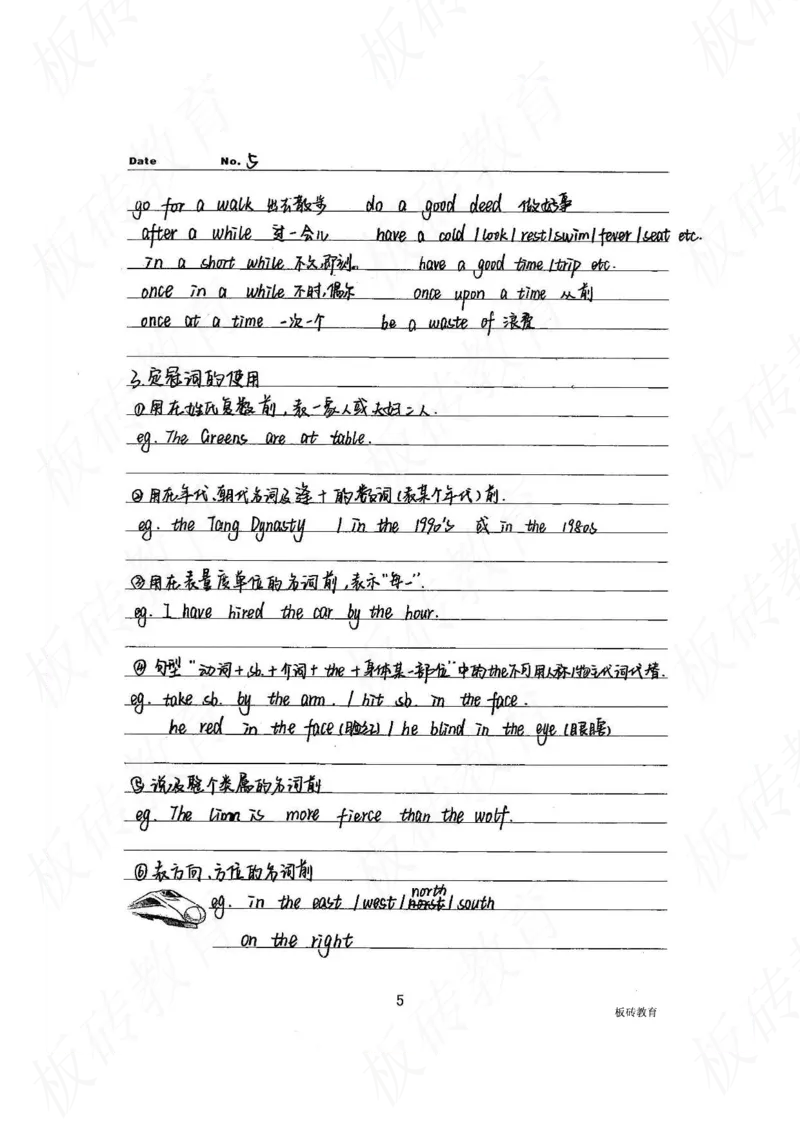 Date No. 5
go for a walk 出去散步 do a good deed 做好事
after a while 过一会儿 have a cold / look / rest / swim / fever / seat etc.
in a short while 不久,即刻。 have a good time / trip etc.
once in a while 不时,偶尔 once upon a time 从前
once at a time 一次一个 be a waste of 浪费
3.定冠词的使用
①用在姓氏复数前,表一家人或夫妇二人.
eg. The Greens are at table.
②用在年代、朝代名词及逢十的数词(表某个年代)前.
eg. the Tang Dynasty / in the 1990's 或 in the 1980s
③用在表量度单位的名词前,表示"每一".
eg. I have hired the car by the hour.
④句型"动词+sb.+介词+the+身体某一部位"中的the不可用人称/物主代词代替.
eg. take sb. by the arm. / hit sb. in the face.
he red in the face(脸红) / he blind in the eye(眼瞎)
⑤说及整个类属的名词前
eg. The lion is more fierce than the wolf.
⑥表方向、方位的名词前
eg. in the east / west / north / south
on the right
5
板砖教育